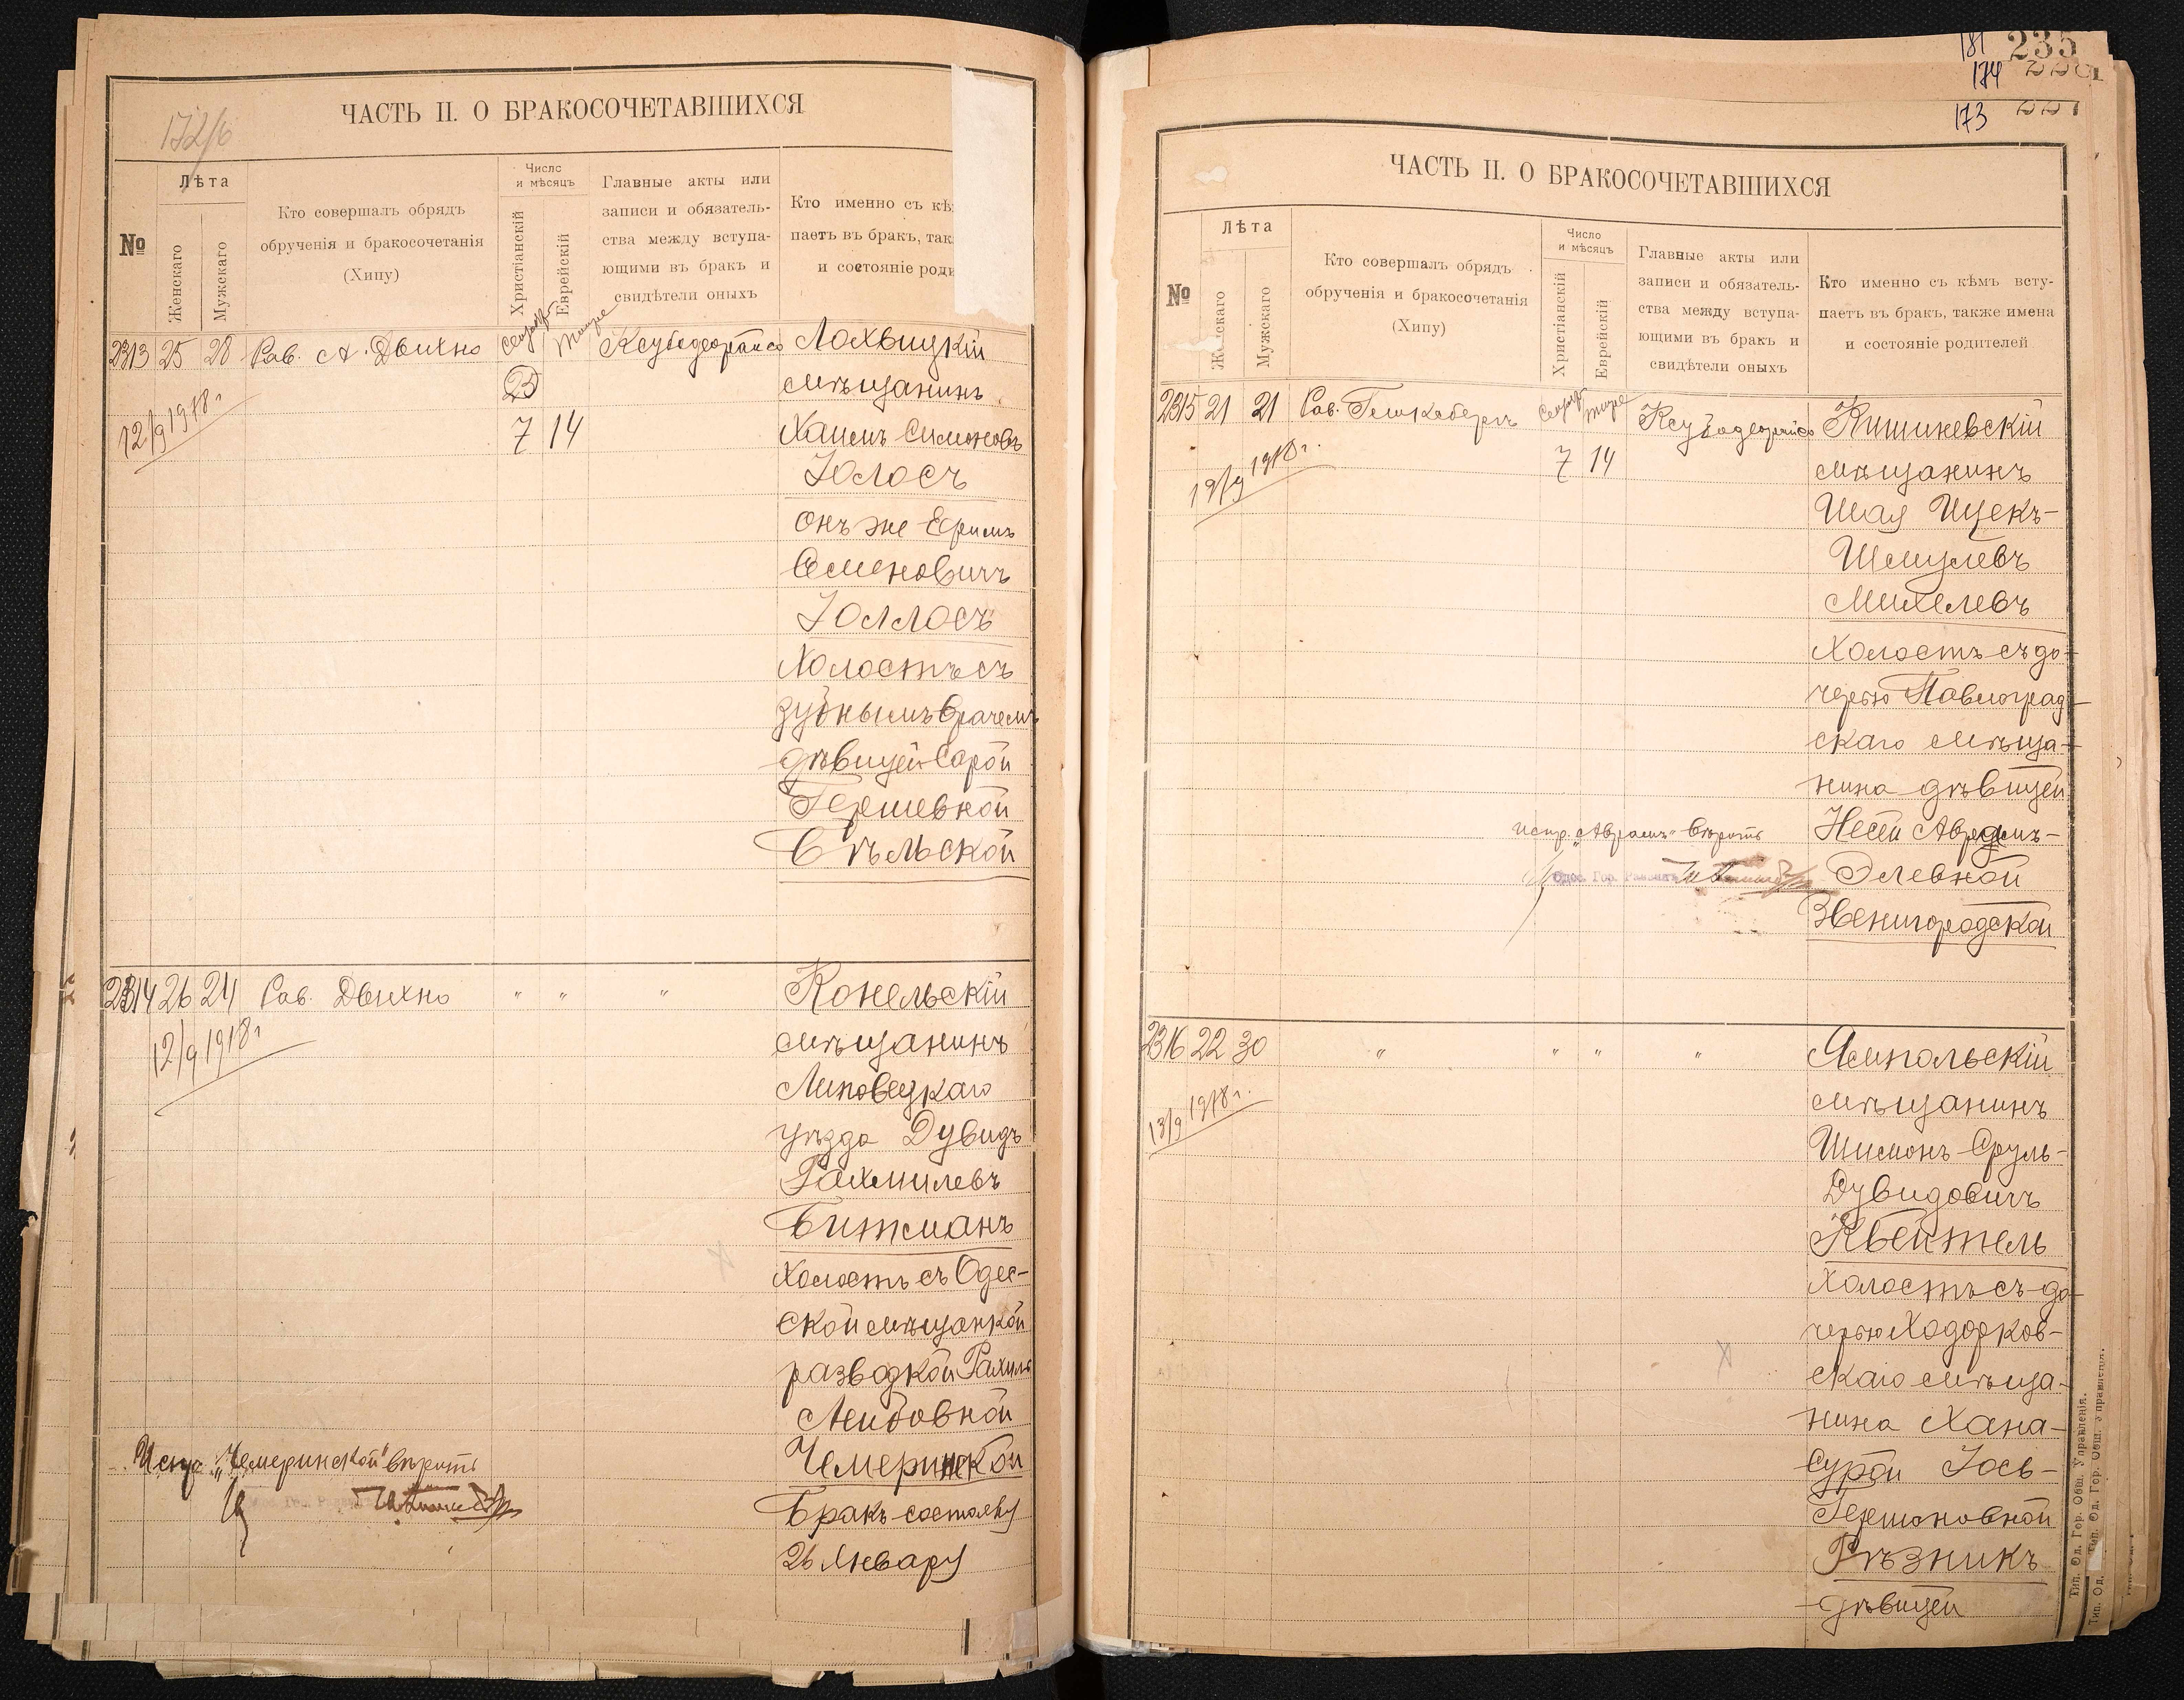 172/6
ЧАСТЬ II. О БРАКОСОЧЕТАВШИХСЯ
№
Лѣта
Женскаго
Мужскаго
Кто совершалъ обрядъ
обрученія и бракосочетанія
(Хипу)
Число
и мѣсяцъ
Христіанскій
Еврейскій
Главные акты или
записи и обязатель-
ства между вступа-
ющими въ бракъ и
свидѣтели оныхъ
Кто именно съ кѣ
паетъ въ бракъ, так
и состояніе роди
2313 25 28 Рав. А. Двихно
25
7 14
12/9 1918 г.
Лохвицкій
мѣщанинъ
Хаимъ Симоновъ
Іолосъ
онъ же Ефимъ
Семеновичъ
Іоллосъ
Холостъ съ
зубнымъ врачемъ
дѣвицей Сарой
Гершевной
Бѣльской
2314 26 24 Рав. Двихно " " "
12/9 1918 г
Конельскій
мѣщанинъ
Липовецкаго
уѣзда Дувидъ
Рахмилевъ
Битманъ
Холостъ съ Одес-
ской мѣщанкой
разводкой Рахиль
Лейбовной
Чемеринской
Бракъ состоялся
26 Января
Испр. „Чемеринской" вѣрить
181
235
174
173
221
ЧАСТЬ II. О БРАКОСОЧЕТАВШИХСЯ
№
Лѣта
Женскаго
Мужскаго
Кто совершалъ обрядъ
обрученія и бракосочетанія
(Хипу)
Число
и мѣсяцъ
Христіанскій
Еврейскій
Главные акты или
записи и обязатель-
ства между вступа-
ющими въ бракъ и
свидѣтели оныхъ
Кто именно съ кѣмъ всту-
паетъ въ бракъ, также имена
и состояніе родителей
2315 21 21 Рав.
7 14
1918 г.
Кишиневскій
мѣщанинъ
Шая Ицекъ-
Шмулевъ
Михелевъ
Холостъ съ до-
черью Павлоград-
скаго мѣща-
нина дѣвицей
Несей Аврамъ-
Элевной
Звенигородской
испр. „Аврамъ" вѣрить
Одес. Гор. Раввинъ
2316 22 30 " " " "
13/9 1918 г.
Ямпольскій
мѣщанинъ
Шимонъ-Сруль-
Дувидовичъ
Квейтель
Холостъ съ до-
черью Ходорков-
скаго мѣща-
нина Хана-
Сурой Іось-
Гершоновной
Рѣзникъ
дѣвицей
Тип. Од. Гор. Общ. Управленія.
Тип. Од. Гор. Общ. Управленія.